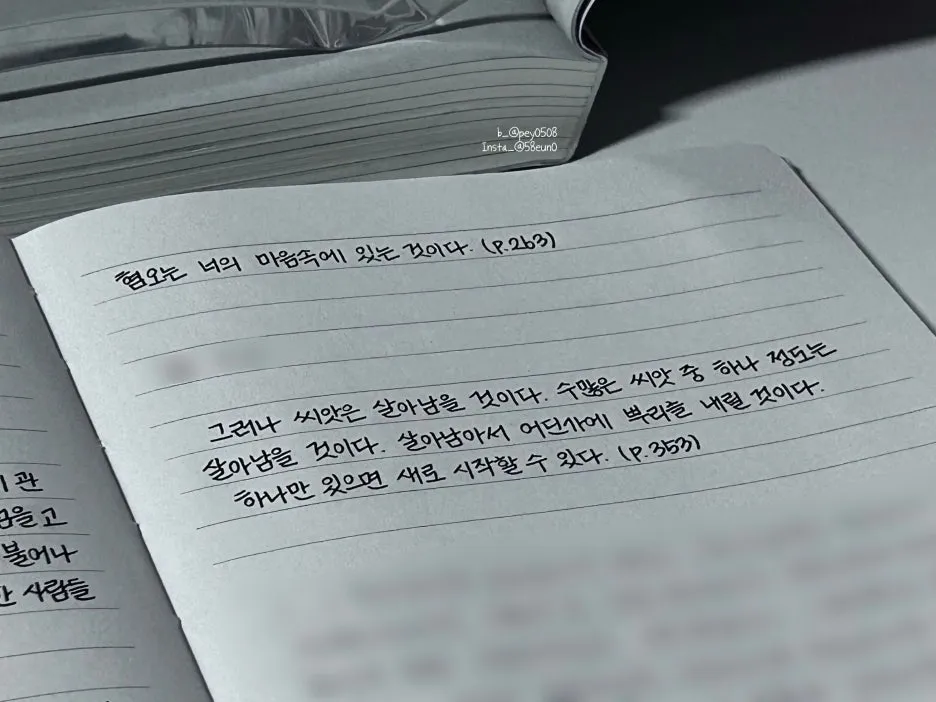 b_@pey0508
Insta_@58eun0
혐오는 너의 마음속에 있는 것이다. (p.263)
그러나 씨앗은 살아남을 것이다. 수많은 씨앗 중 하나 정도는
살아남을 것이다. 살아남아서 어딘가에 뿌리를 내릴 것이다.
하나만 있으면 새로 시작할 수 있다. (p.353)
관
을고
불어나
사람들